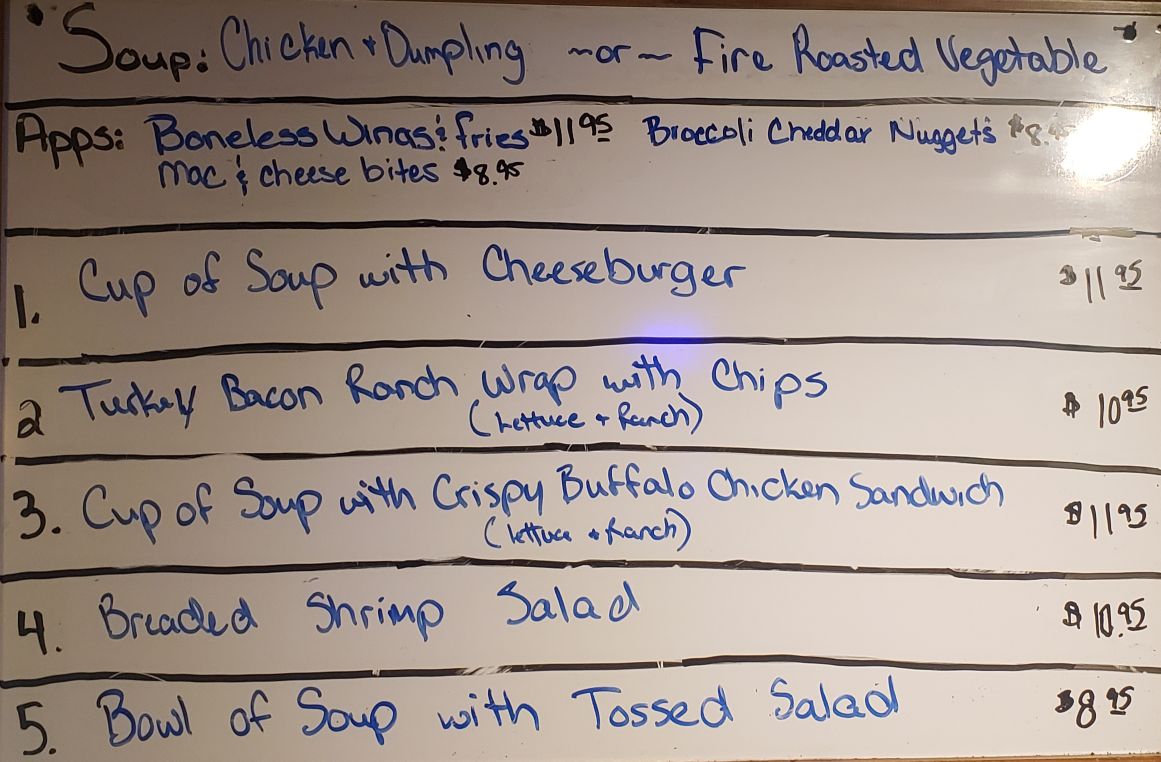 Soup: Chicken + Dumpling ~or~ Fire Roasted Vegetable
Apps: Boneless Wings & fries $11.95 Broccoli Cheddar Nuggets $8.95
Mac & cheese bites $8.95
1. Cup of Soup with Cheeseburger $11.95
2 Turkey Bacon Ranch Wrap with Chips $10.95
(Lettuce + Ranch)
3. Cup of Soup with Crispy Buffalo Chicken Sandwich $11.95
(lettuce + Ranch)
4. Breaded Shrimp Salad $10.95
5. Bowl of Soup with Tossed Salad $8.95